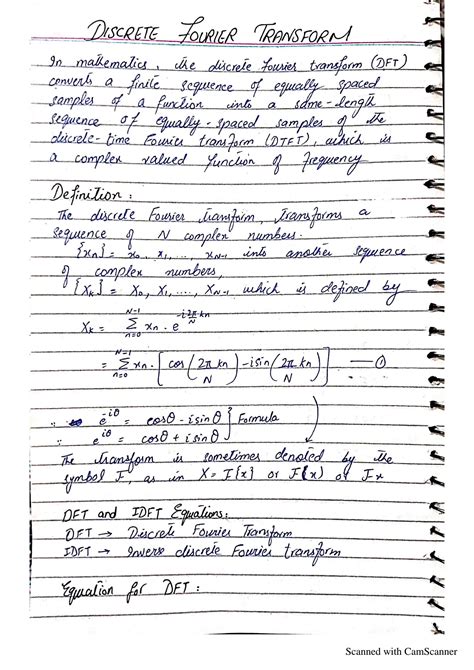 DISCRETE FOURIER TRANSFORM
In mathematics, the discrete fourier transform (DFT)
converts a finite sequence of equally spaced
samples of a function into a same-length
sequence of equally-spaced samples of the
discrete-time Fourier transform (DTFT), which is
a complex valued function of frequency
Definition:
The discrete Fourier transform, transforms a
sequence of N complex numbers.
{xn} = x₀, x₁, ...., xN-1 into another sequence
of complex numbers,
{Xk} = X₀, X₁, ...., XN-1 which is defined by
Xk = Σ (n=0 to N-1) xn . e^(-i2π kn/N)
= Σ (n=0 to N-1) xn . [cos(2π kn/N) - isin(2π kn/N)] — ①
∵ e^(-iθ) = cosθ - isinθ } Formula
∵ e^(iθ) = cosθ + isinθ
The transform is sometimes denoted by the
symbol F, as in X = F{x} or F(x) or Fx
DFT and IDFT Equations:
DFT → Discrete Fourier Transform
IDFT → Inverse discrete Fourier transform
Equation for DFT :
Scanned with CamScanner